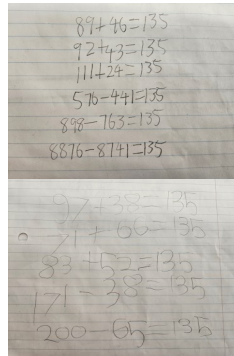 89+46=135
92+43=135
111+24=135
576-441=135
898-763=135
8876-8741=135
97+38=135
71+66=135
83+52=135
171-38=135
200-65=135